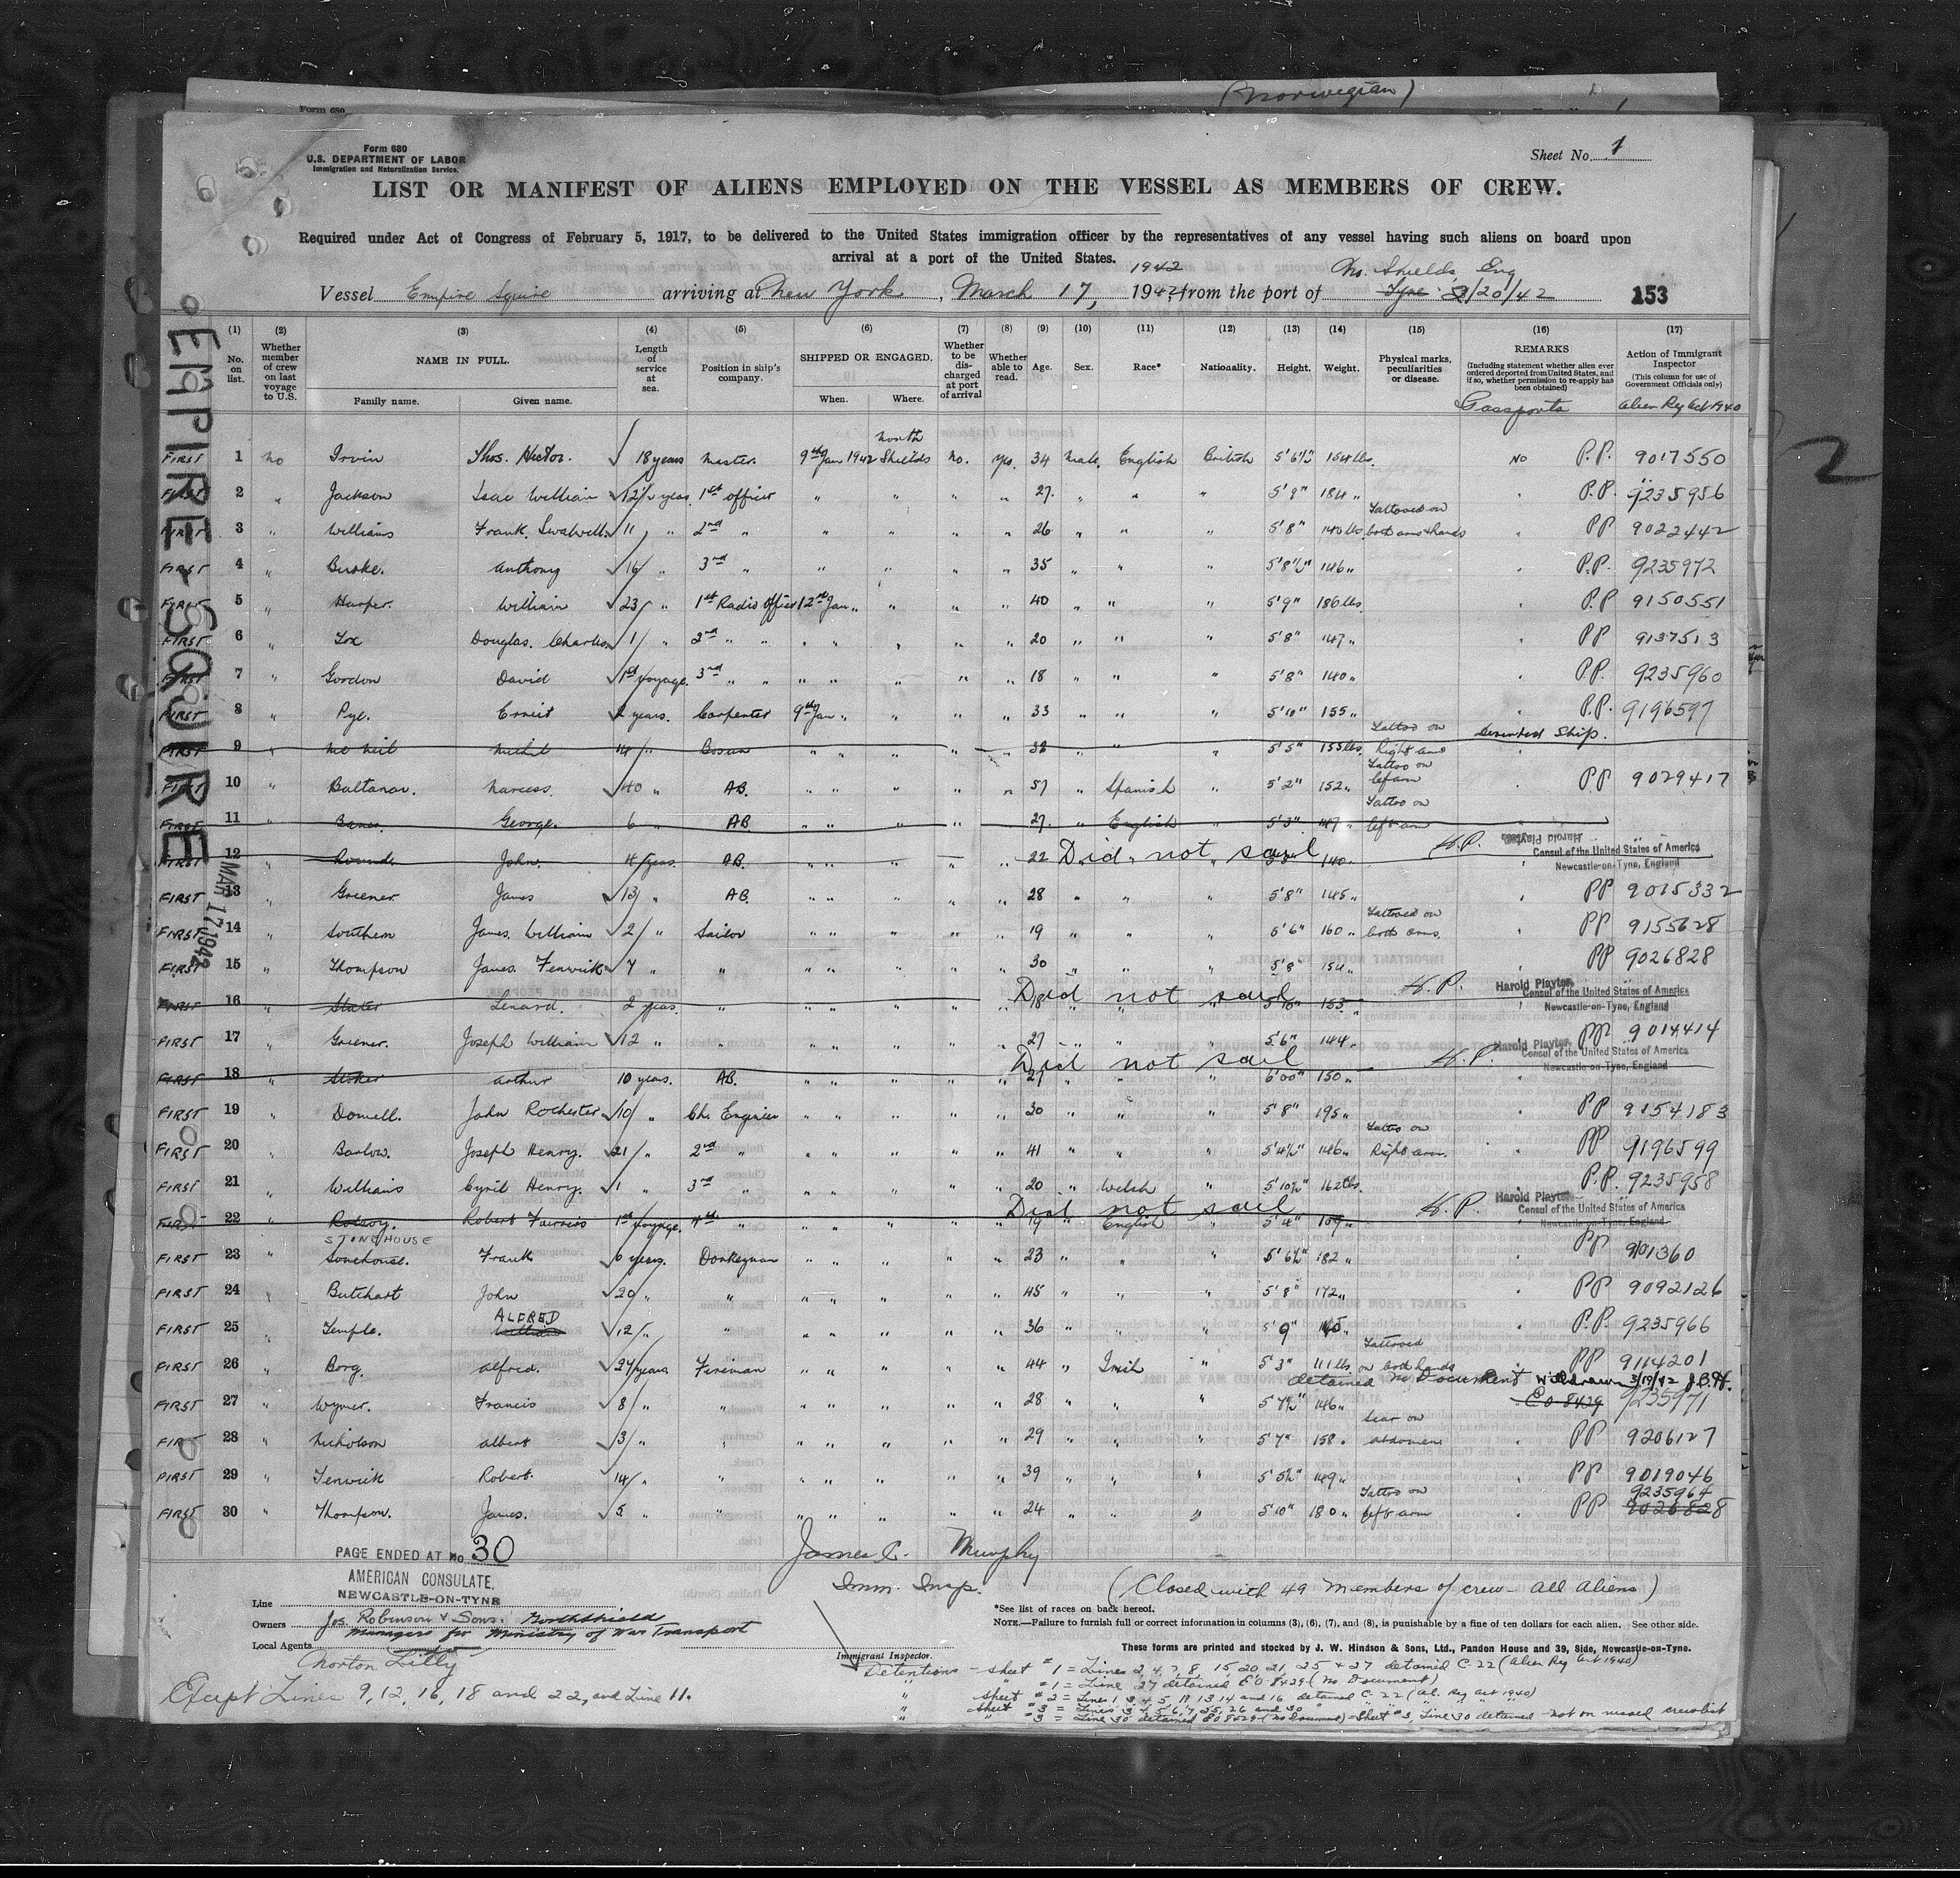 (Norwegian)
Form 680
Form 680
U.S. DEPARTMENT OF LABOR
Immigration and Naturalization Service.
Sheet No. 1
LIST OR MANIFEST OF ALIENS EMPLOYED ON THE VESSEL AS MEMBERS OF CREW.
Required under Act of Congress of February 5, 1917, to be delivered to the United States immigration officer by the representatives of any vessel having such aliens on board upon
arrival at a port of the United States.
1942 No. Shields Eng
Vessel Empire Squire arriving at New York, March 17, 1942, from the port of Tyne 2/20/42 153
(1) (2) (3) (4) (5) (6) (7) (8) (9) (10) (11) (12) (13) (14) (15) (16) (17)
No. on list.
Whether member of crew on last voyage to U.S.
NAME IN FULL.
Family name. Given name.
Length of service at sea.
Position in ship's company.
SHIPPED OR ENGAGED.
When. Where.
Whether to be discharged at port of arrival
Whether able to read.
Age. Sex. Race* Nationality. Height. Weight.
Physical marks, peculiarities or disease.
REMARKS
(Including statement whether alien ever ordered deported from United States, and if so, whether permission to re-apply has been obtained)
Passports
Action of Immigrant Inspector
(This column for use of Government Officials only)
Alien Reg Act 1940
EMPIRE SQUIRE
MAR 17 1942
2
FIRST 1 no Irvin Thos. Hector. 18 years master. 9th Jan 1942 North Shields no. yes. 34 male. English British 5' 6½" 154 lbs. NO P.P. 9017550
FIRST 2 " Jackson Isac William 12½ years 1st officer " " " " 27. " " " 5' 8" 184 " P.P. 9235956
FIRST 3 " Williams Frank. Swalwell. 11 " 2nd " " " " " 26 " " " 5' 8" 140 lbs. Tattooed on both arms & hands PP 9022442
FIRST 4 " Burke. Anthony 16 " 3rd " " " " " 35 " " " 5' 8½" 146 " P.P. 9235972
FIRST 5 " Harper. William 23 " 1st Radio officer 12th Jan " " " " 40 " " " 5' 9" 186 lbs. P.P 9150551
FIRST 6 " Fox Douglas. Charles. 1 " 2nd " " " " " " " 20 " " " 5' 8" 147 " PP 9137513
FIRST 7 " Gordon David 1st voyage. 3rd " " " " " " " 18 " " " 5' 8" 140 " P.P. 9235960
FIRST 8 " Pye. Ernest 2 years. Carpenter 9th Jan " " " " 33 " " " 5' 10" 155 " P.P. 9196597
FIRST 9 " Mc Neil 14 " Bosun " " " " " 32 " " " 5' 5" 155 lbs. Tattoo on Right arm Deserted Ship.
FIRST 10 " Baltanar. Narcess. 40 " AB. " " " " " 57 " Spanish " 5' 2" 152 " Tattoo on left arm PP 9029417
FIRST 11 " George. 6 " AB " " " " 27. " English " 5' 3" 147 " Tattoo on left arm
FIRST 12 " John. 4 years. AB. " " " " " 22 Did not sail 140 " H.P. Harold Playter Consul of the United States of America Newcastle-on-Tyne, England
FIRST 13 " Greener James 13 " AB. " " " " " 28 " " " 5' 8" 145 " PP 9015332
FIRST 14 " Southern James. William 2 " Sailor " " " " " 19 " " " 5' 6" 160 " Tattooed on both arms. PP 9155628
FIRST 15 " Thompson James. Fenwick 7 " " " " " " " 30 " " " 5' 8" 154 " PP 9026828
FIRST 16 " Slater Lenard. 2 years. " " " " " " 18 Did not sail 153 " H.P. Harold Playter Consul of the United States of America Newcastle-on-Tyne, England
FIRST 17 " Greener. Joseph William 12 " " " " " " " 27 " " " 5' 6" 144 " PP 9014414
FIRST 18 " Arthur 10 years. AB. " " " " " 27 Did not sail 6' 00" 150 " H.P. Harold Playter Consul of the United States of America Newcastle-on-Tyne, England
FIRST 19 " Dowell. John Rochester 10 " Ch. Engineer " " " " " 30 " " " 5' 8" 195 " PP 9154183
FIRST 20 " Barlow. Joseph Henry. 21 " 2nd " " " " " " 41 " " " 5' 4½" 146 " Tattoo on Right arm. PP 9196599
FIRST 21 " Williams Cyril Henry. 1 " 3rd " " " " " " 20 " Welsh " 5' 10½" 162 lbs. P.P. 9235958
FIRST 22 " Robert Fairness 1st voyage. 4th " " " " " " 19 Did not sail English 5' 4" 109 " H.P. Harold Playter Consul of the United States of America Newcastle-on-Tyne, England
STONEHOUSE
FIRST 23 " Sonehouse. Frank 6 years. Donkeyman " " " " " 23 " " " 5' 6½" 182 " PP 9101360
FIRST 24 " Butchart John 20 " " " " " " " 45 " " " 5' 8" 172 " PP 9092126
ALFRED
FIRST 25 " Temple. William 12 " " " " " " " 36 " " " 5' 9" 145 " P.P. 9235966
FIRST 26 " Borg. Alfred. 27 years Fireman " " " " " 44 " Irish " 5' 3" 111 lbs Tattooed on both hands PP 9114201
detained no Document Withdrawn 3/19/42 J.B.H.
FIRST 27 " Wymer. Francis 8 " " " " " " " 28 " " " 5' 7½" 146 " E O 8429 9235971
FIRST 28 " Nicholson Albert 3 " " " " " " " 29 " " " 5' 7" 158 " Scar on abdomen PP 9206127
FIRST 29 " Fenwick Robert. 14 " " " " " " " 39 " " " 5' 5½" 149 " PP 9019046
9235964
FIRST 30 " Thompson. James. 5 " " " " " " " 24 " " " 5' 10" 180 " Tattoo on left arm PP 9026828
PAGE ENDED AT No 30
AMERICAN CONSULATE.
NEWCASTLE-ON-TYNE
James C. Murphy
Imm. Insp.
(Closed with 49 members of crew - all aliens)
Line
Owners Jos. Robinson & Sons. Northshield
Managers for Ministry of War Transport
Local Agents
Norton Lilly
Except Lines 9, 12, 16, 18 and 22, and Line 11.
*See list of races on back hereof.
NOTE.—Failure to furnish full or correct information in columns (3), (6), (7), and (8), is punishable by a fine of ten dollars for each alien. See other side.
These forms are printed and stocked by J. W. Hindson & Sons, Ltd., Pandon House and 39, Side, Newcastle-on-Tyne.
Immigrant Inspector.
Detentions - sheet #1 = Lines 2, 4, 7, 8, 15, 20, 21, 25 & 27 detained C-22 (Alien Reg Act 1940)
" " #1 = Line 27 detained E O 8429 (no Document)
" sheet #2 = Lines 1, 3, 4, 5, 11, 13, 14 and 16 detained C-22 (Al. Reg Act 1940)
" sheet #3 = Lines 3, 4, 5, 6, 7, 25, 26 and 30 "
" " #3 = Line 30 detained E O 8429 (no Document) - Sheet #3, Line 30 detained - not on vessel crew list